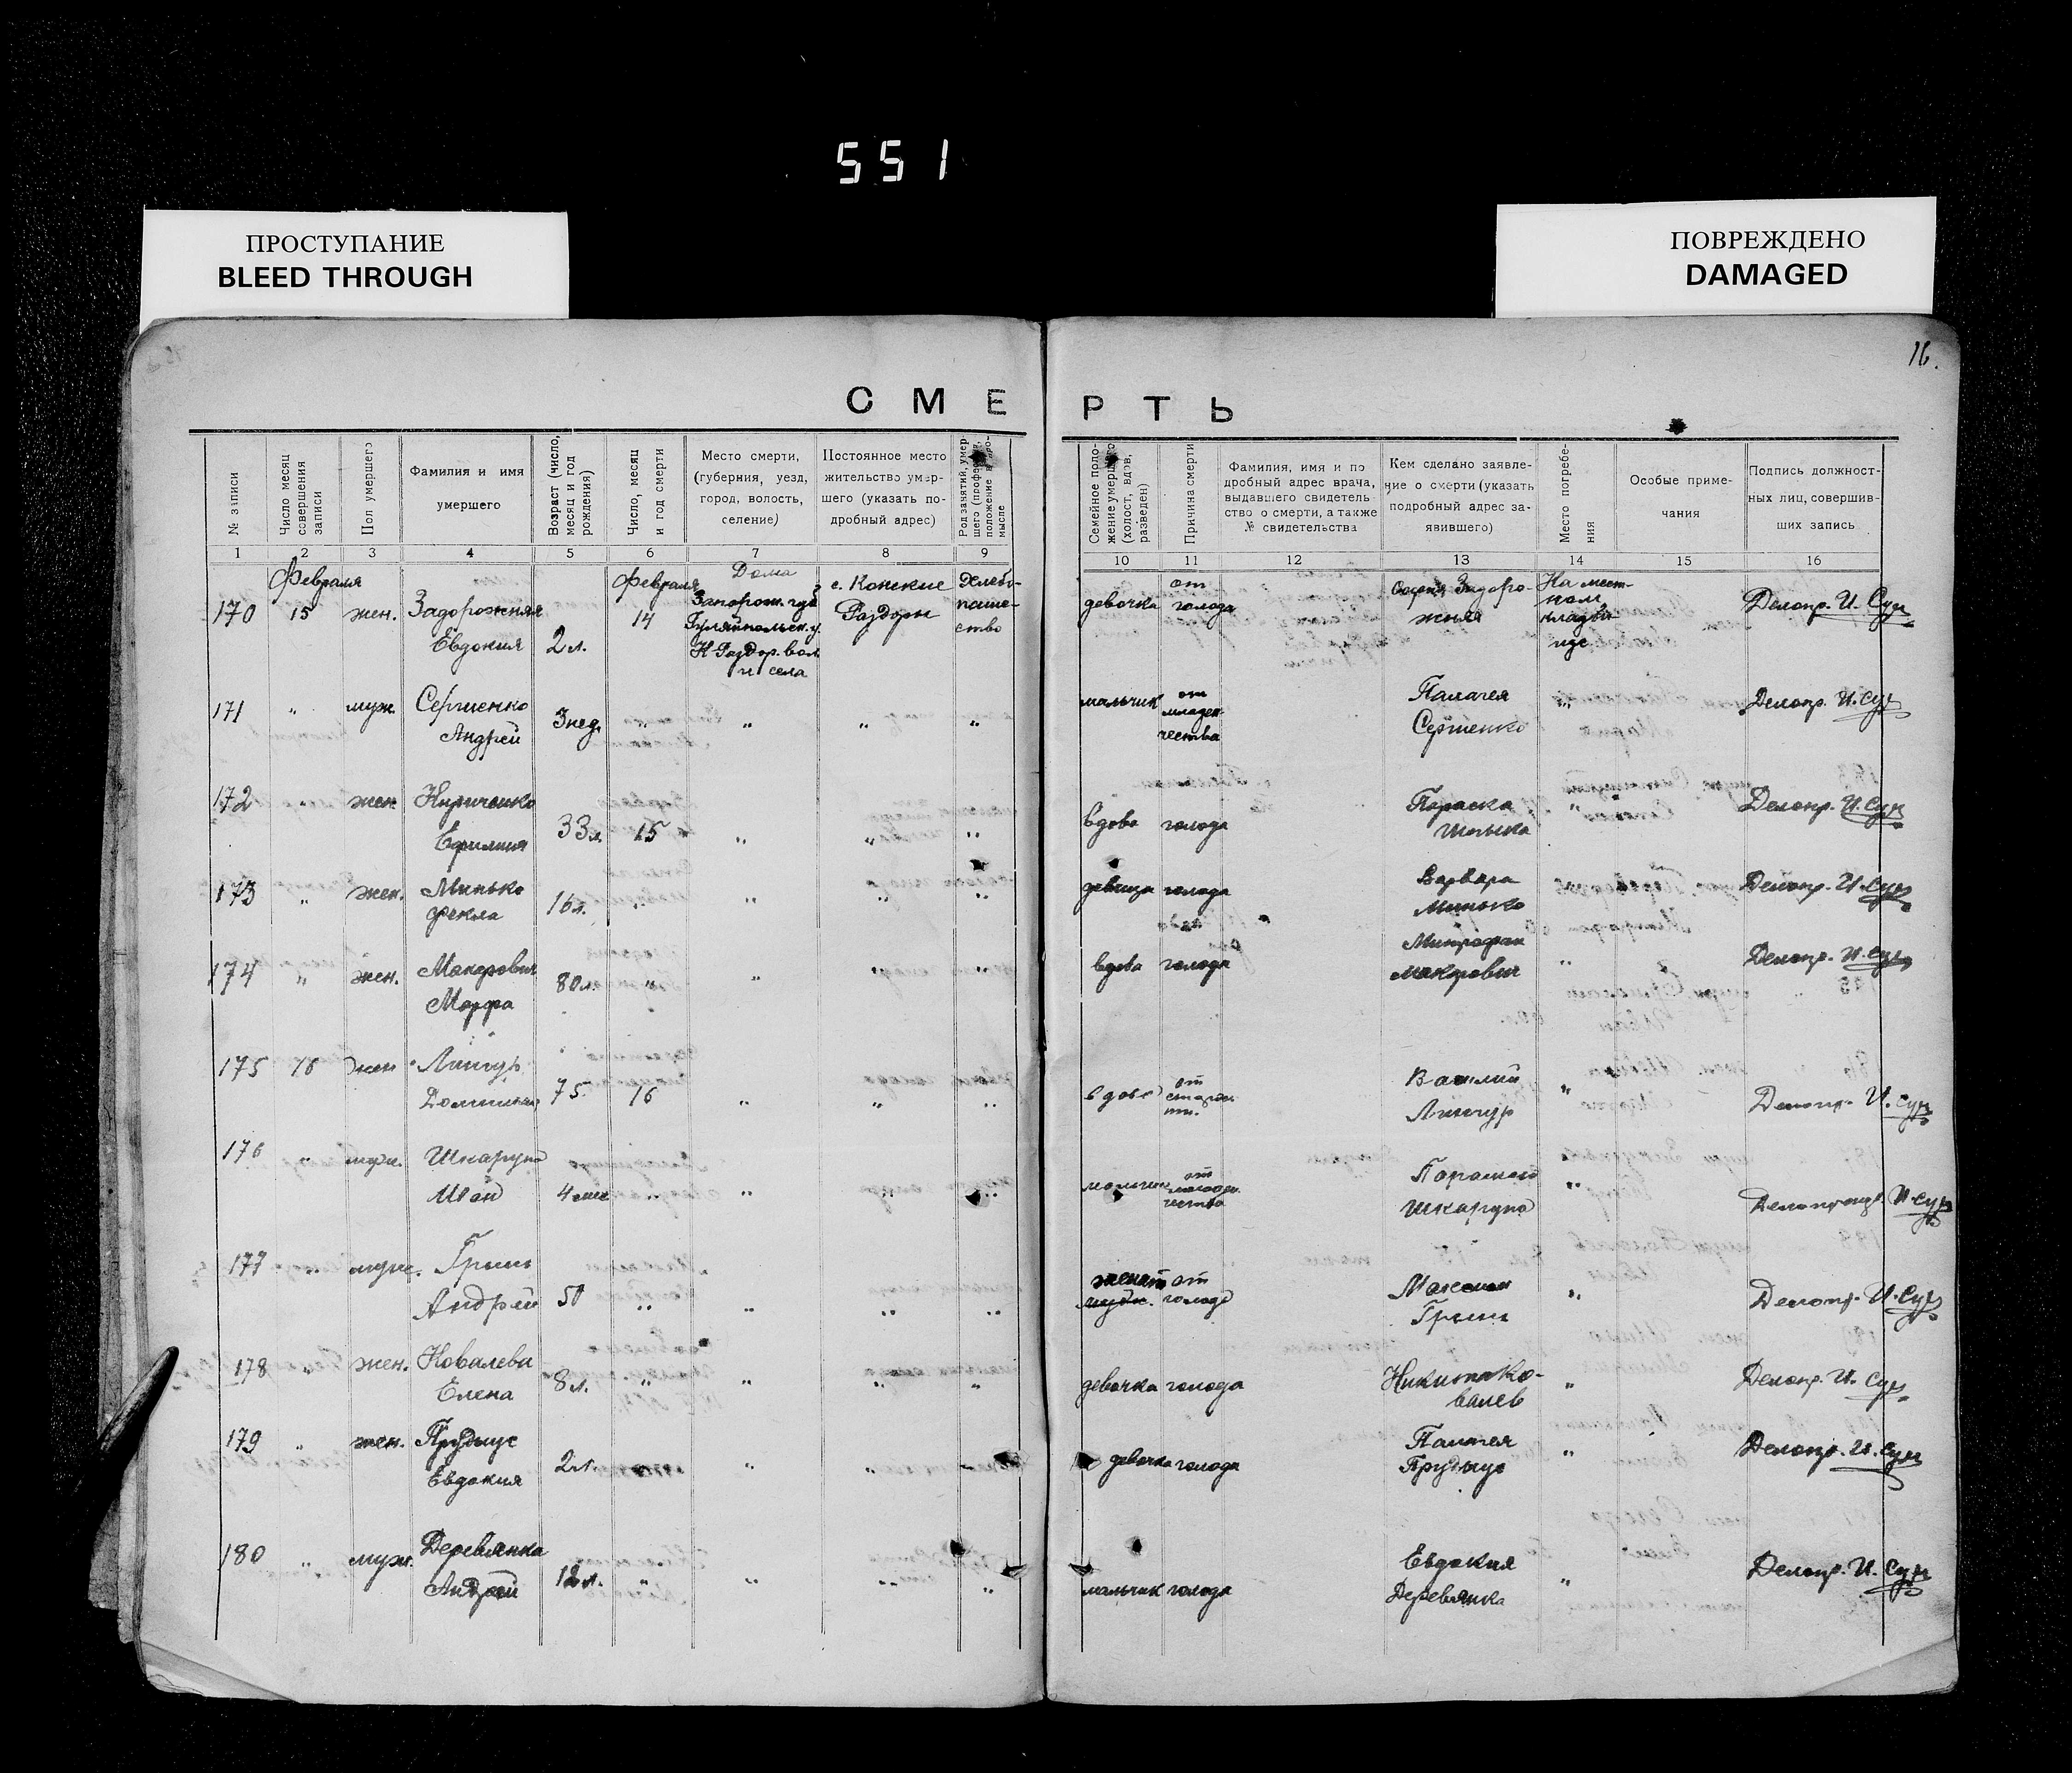 551
ПРОСТУПАНИЕ
BLEED THROUGH
ПОВРЕЖДЕНО
DAMAGED
16.
СМЕРТЬ
№ записи
Число месяц совершения записи
Пол умершего
Фамилия и имя умершего
Возраст (число, месяц и год рождения)
Число, месяц и год смерти
Место смерти, (губерния, уезд, город, волость, селение)
Постоянное место жительство умершего (указать подробный адрес)
Род занятий, умершего (профессия, положение в промысле
Семейное положение умершего (холост, вдов, разведен)
Причина смерти
Фамилия, имя и подробный адрес врача, выдавшего свидетельство о смерти, а также № свидетельства
Кем сделано заявление о смерти (указать подробный адрес заявившего)
Место погребения
Особые примечания
Подпись должностных лиц, совершивших запись
1 2 3 4 5 6 7 8 9 10 11 12 13 14 15 16
Февраля Февраля Дома с. Конские Хлебо- от Задоро- На мест-
170 15 жен. Задорожняя 14 Запорож. губ Раздоры паше- девочка голода жняя ном Делопр. И. Сух
Евдокия 2 л. Гуляйпольск. у. ство кладби-
К-Раздор. вол. ще
и села
171 " муж. Сергиенко мальчик от Палагея " Делопр. И. Сух
Андрей 3 нед. " " " " младен- Сергиенко
чества
172 " жен Кириченко Параска " Делопр. И. Сух
33 л. 15 " " " вдова голода
173 " жен. Минько девица голода Варвара " Делопр. И. Сух
Фекла 16 л. " " " " Минько
174 " жен. Макарович вдова голода Митрофан " Делопр. И. Сух
Марфа 80 л. " " " " Макарович
175 16 жен Василий "
75 16 " " " вдова от старости. Делопр. И. Сух
176 " муж. Шкарупа "
Иван 4 мес " " " " мальчик от младен- Шкарупа Делопр. И. Сух
чества
177 " муж. Гринь женат от Максим "
Андрей 50 " " " " голода Гринь Делопр. И. Сух
178 " жен. Ковалева Никита Ко- " Делопр. И. Сух
Елена 8 л. " " " " девочка голода валев
179 " жен. Прудиус Палагея " Делопр. И. Сух
Евдокия 2 л. " " " " девочка голода Прудиус
180 " муж. Деревянка Евдокия Делопр. И. Сух
Андрей 12 л. " " " " мальчик голода Деревянка "